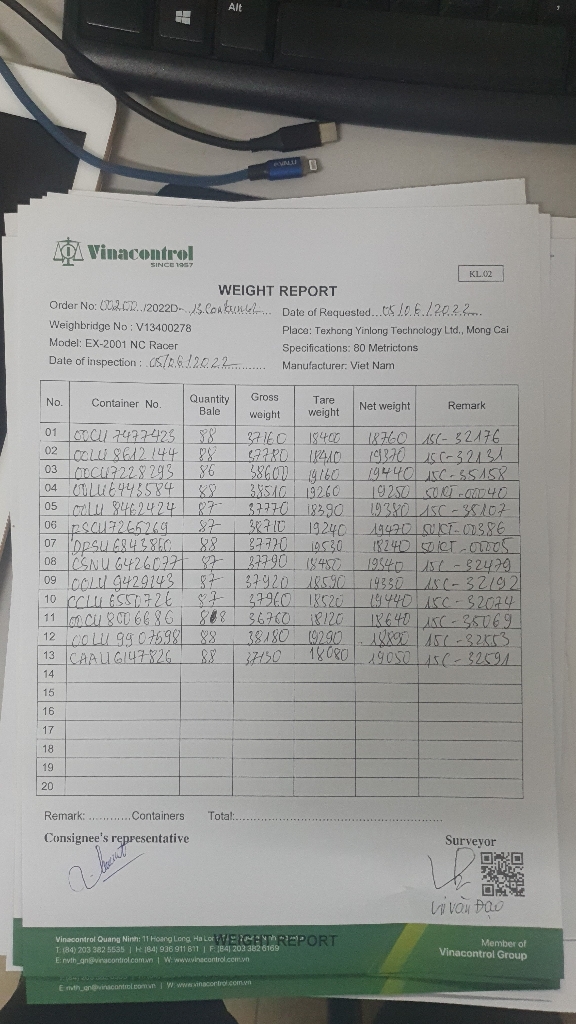 Alt
Vinacontrol
SINCE 1957
KL.02
WEIGHT REPORT
Order No: 00200/2022D- 13 Container Date of Requested 05/06/2022
Weighbridge No : V13400278 Place: Texhong Yinlong Technology Ltd., Mong Cai
Model: EX-2001 NC Racer Specifications: 80 Metrictons
Date of inspection : 05/06/2022 Manufacturer: Viet Nam
No. Container No. Quantity Bale Gross weight Tare weight Net weight Remark
01 OOCU 7477423 88 37160 18400 18760 15C-32176
02 OOLU 8612144 88 37780 18410 19370 15C-32131
03 OOCU7228293 86 38600 19160 19440 15C-35158
04 OOLU6443584 88 38510 19260 19250 50KT-00040
05 OOLU 8462424 87 37770 18390 19380 15C-35107
06 PSCU7265269 87 38710 19240 19470 50KT-00386
07 DPSU6843860 88 37770 19530 18240 50KT-00005
08 CSNU 6426077 87 37790 18450 19340 15C-32479
09 OOLU 9429143 87 37920 18590 19330 15C-32192
10 CCLU 6550726 87 37960 18520 19440 15C-32074
11 OOCU 8006686 88 36760 18120 18640 15C-35069
12 OOLU 9907698 88 38180 19290 18890 15C-32553
13 CAAU 6147826 88 37130 18080 19050 15C-32591
14
15
16
17
18
19
20
Remark: ............Containers Total:
Consignee's representative Surveyor
Vũ Văn Đạo
Vinacontrol Quang Ninh: 11 Hoang Long, Ha Lo
WEIGHT REPORT
T: (84) 203 382 5535 | H: (84) 936 911 811 | F: (84) 203 382 6169
E: nvth_qn@vinacontrol.com.vn | W: www.vinacontrol.com.vn
Member of
Vinacontrol Group
E: nvth_qn@vinacontrol.com.vn | W: www.vinacontrol.com.vn